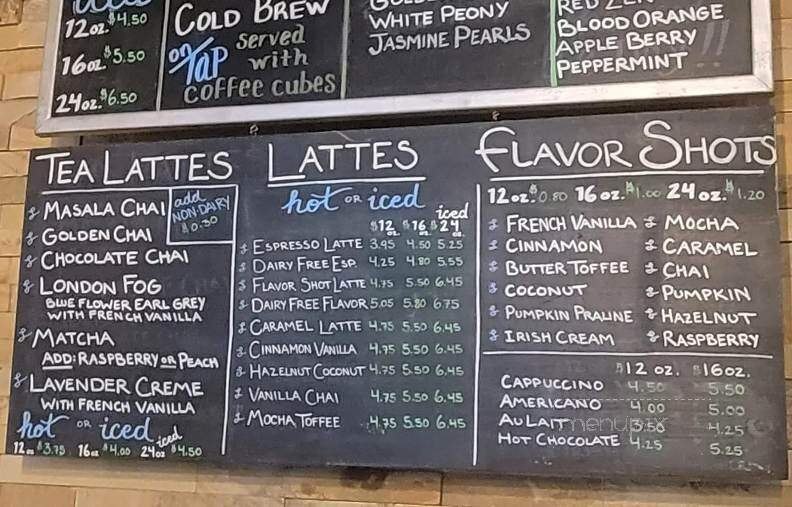 12oz. $4.50
16oz. $5.50
24oz. $6.50
COLD BREW
on TAP served
with
coffee cubes
WHITE PEONY
JASMINE PEARLS
BLOOD ORANGE
APPLE BERRY
PEPPERMINT
TEA LATTES
add
NON-DAIRY
$0.30
MASALA CHAI
GOLDEN CHAI
CHOCOLATE CHAI
LONDON FOG
BLUE FLOWER EARL GREY
WITH FRENCH VANILLA
MATCHA
ADD: RASPBERRY OR PEACH
LAVENDER CREME
WITH FRENCH VANILLA
hot OR iced
12oz $3.75 16oz $4.00 iced 24oz $4.50
LATTES
hot OR iced
iced
$12 oz. $16 oz. $24 oz.
ESPRESSO LATTE 3.95 4.50 5.25
DAIRY FREE ESP. 4.25 4.80 5.55
FLAVOR SHOT LATTE 4.75 5.50 6.45
DAIRY FREE FLAVOR 5.05 5.80 6.75
CARAMEL LATTE 4.75 5.50 6.45
CINNAMON VANILLA 4.75 5.50 6.45
HAZELNUT COCONUT 4.75 5.50 6.45
VANILLA CHAI 4.75 5.50 6.45
MOCHA TOFFEE 4.75 5.50 6.45
FLAVOR SHOTS
12oz. $0.80 16oz. $1.00 24oz. $1.20
FRENCH VANILLA MOCHA
CINNAMON CARAMEL
BUTTER TOFFEE CHAI
COCONUT PUMPKIN
PUMPKIN PRALINE HAZELNUT
IRISH CREAM RASPBERRY
$12 oz. $16oz.
CAPPUCCINO 4.50 5.50
AMERICANO 4.00 5.00
AU LAIT 3.50 4.25
HOT CHOCOLATE 4.25 5.25